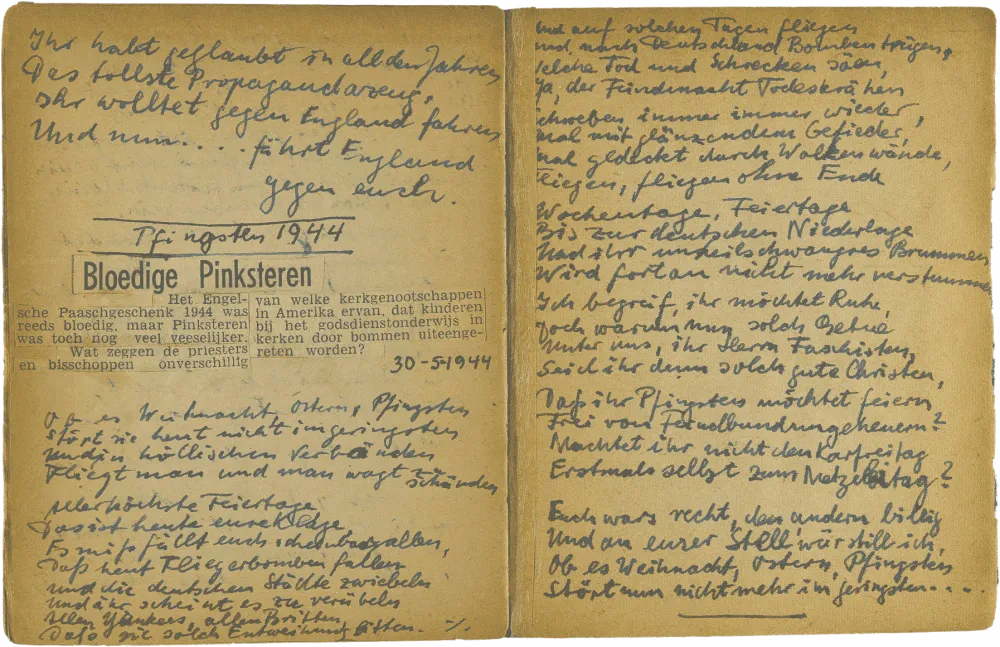 Ihr habt geglaubt in all den Jahren
Das tollste Propagandazeug,
Ihr wolltet gegen England fahren
Und nun.... fährt England
gegen euch.
Pfingsten 1944
Bloedige Pinksteren
Het Engel-
sche Paaschgeschenk 1944 was
reeds bloedig, maar Pinksteren
was toch nog veel veeselijker.
Wat zeggen de priesters
en bisschoppen onverschillig
van welke kerkgenootschappen
in Amerika ervan, dat kinderen
bij het godsdienstonderwijs in
kerken door bommen uiteenge-
reten worden?
30-5-1944
Ob es Weihnacht, Ostern, Pfingsten
Stört sie heut nicht im geringsten
Und in höllischen Verbänden
Fliegt man und man wagt zu schänden
allerhöchste Feiertage,
Das ist heute eure Klage,
Es missfällt euch scheinbar allen,
Daß heut Fliegerbomben fallen
und die deutschen Städte zwiebeln
Und ihr scheint es zu verübeln
Allen Yankees, allen Britten,
Daß sie solch Entweihung litten. ·/.
und auf solchen Tagen fliegen
und nach Deutschland Bomben trügen,
welche Tod und Schrecken säen,
Ja, der Feindmacht Todeskrähen
schweben immer immer wieder,
mal mit glänzendem Gefieder,
mal gedeckt durch Wolkenwände,
Fliegen, fliegen ohne Ende
Wochentage, Feiertage
Bis zur deutschen Niederlage
Und ihr unheilschwangres Brummen
Wird fortan nicht mehr verstummen
Ich begreif, ihr möchtet Ruhe,
Doch warum nun solch Getue
Unter uns, ihr Herrn Faschisten,
Seid ihr denn solch gute Christen,
Daß ihr Pfingsten möchtet feiern
Frei von Feindbundungeheuern?
Machtet ihr nicht den Karfreitag
Erstmals selbst zum Metzeltag?
Euch wars recht, den andern billig
Und an eurer Stell wär still ich,
Ob es Weihnacht, Ostern, Pfingsten
Stört nun nicht mehr im geringsten....